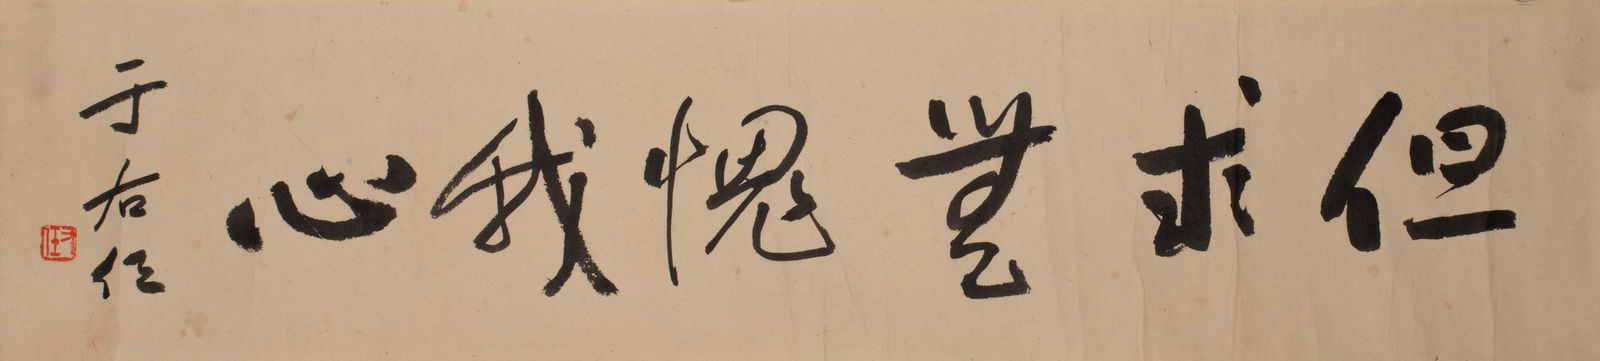 但求無愧我心
于右任
右任